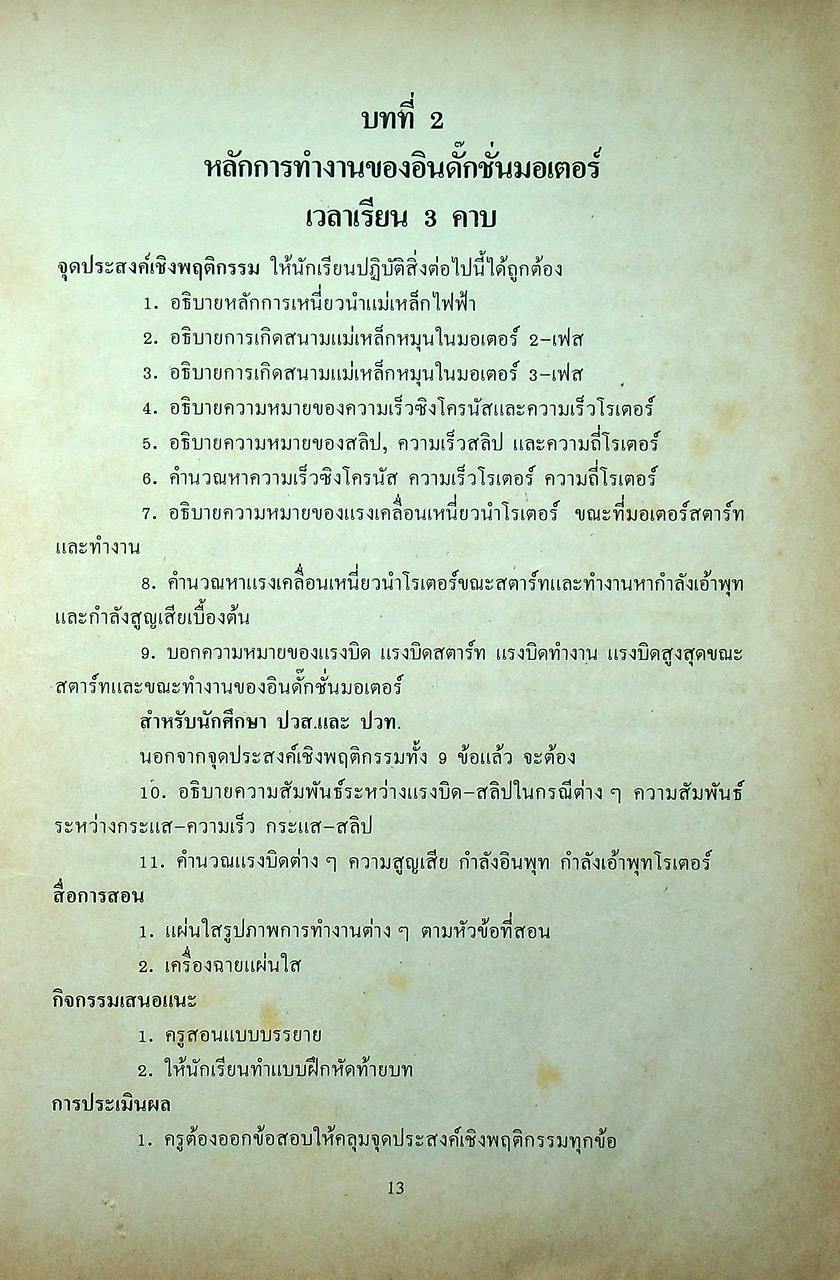 บทที่ 2
หลักการทำงานของอินดั๊กชั่นมอเตอร์
เวลาเรียน 3 คาบ
จุดประสงค์เชิงพฤติกรรม ให้นักเรียนปฏิบัติสิ่งต่อไปนี้ได้ถูกต้อง
1. อธิบายหลักการเหนี่ยวนำแม่เหล็กไฟฟ้า
2. อธิบายการเกิดสนามแม่เหล็กหมุนในมอเตอร์ 2-เฟส
3. อธิบายการเกิดสนามแม่เหล็กหมุนในมอเตอร์ 3-เฟส
4. อธิบายความหมายของความเร็วซิงโครนัสและความเร็วโรเตอร์
5. อธิบายความหมายของสลิป, ความเร็วสลิป และความถี่โรเตอร์
6. คำนวณหาความเร็วซิงโครนัส ความเร็วโรเตอร์ ความถี่โรเตอร์
7. อธิบายความหมายของแรงเคลื่อนเหนี่ยวนำโรเตอร์ ขณะที่มอเตอร์สตาร์ท
และทำงาน
8. คำนวณหาแรงเคลื่อนเหนี่ยวนำโรเตอร์ขณะสตาร์ทและทำงานหากำลังเอ้าพุท
และกำลังสูญเสียเบื้องต้น
9. บอกความหมายของแรงบิด แรงบิดสตาร์ท แรงบิดทำงาน แรงบิดสูงสุดขณะ
สตาร์ทและขณะทำงานของอินดั๊กชั่นมอเตอร์
สำหรับนักศึกษา ปวส.และ ปวท.
นอกจากจุดประสงค์เชิงพฤติกรรมทั้ง 9 ข้อแล้ว จะต้อง
10. อธิบายความสัมพันธ์ระหว่างแรงบิด-สลิปในกรณีต่าง ๆ ความสัมพันธ์
ระหว่างกระแส-ความเร็ว กระแส-สลิป
11. คำนวณแรงบิดต่าง ๆ ความสูญเสีย กำลังอินพุท กำลังเอ้าพุทโรเตอร์
สื่อการสอน
1. แผ่นใสรูปภาพการทำงานต่าง ๆ ตามหัวข้อที่สอน
2. เครื่องฉายแผ่นใส
กิจกรรมเสนอแนะ
1. ครูสอนแบบบรรยาย
2. ให้นักเรียนทำแบบฝึกหัดท้ายบท
การประเมินผล
1. ครูต้องออกข้อสอบให้คลุมจุดประสงค์เชิงพฤติกรรมทุกข้อ
13